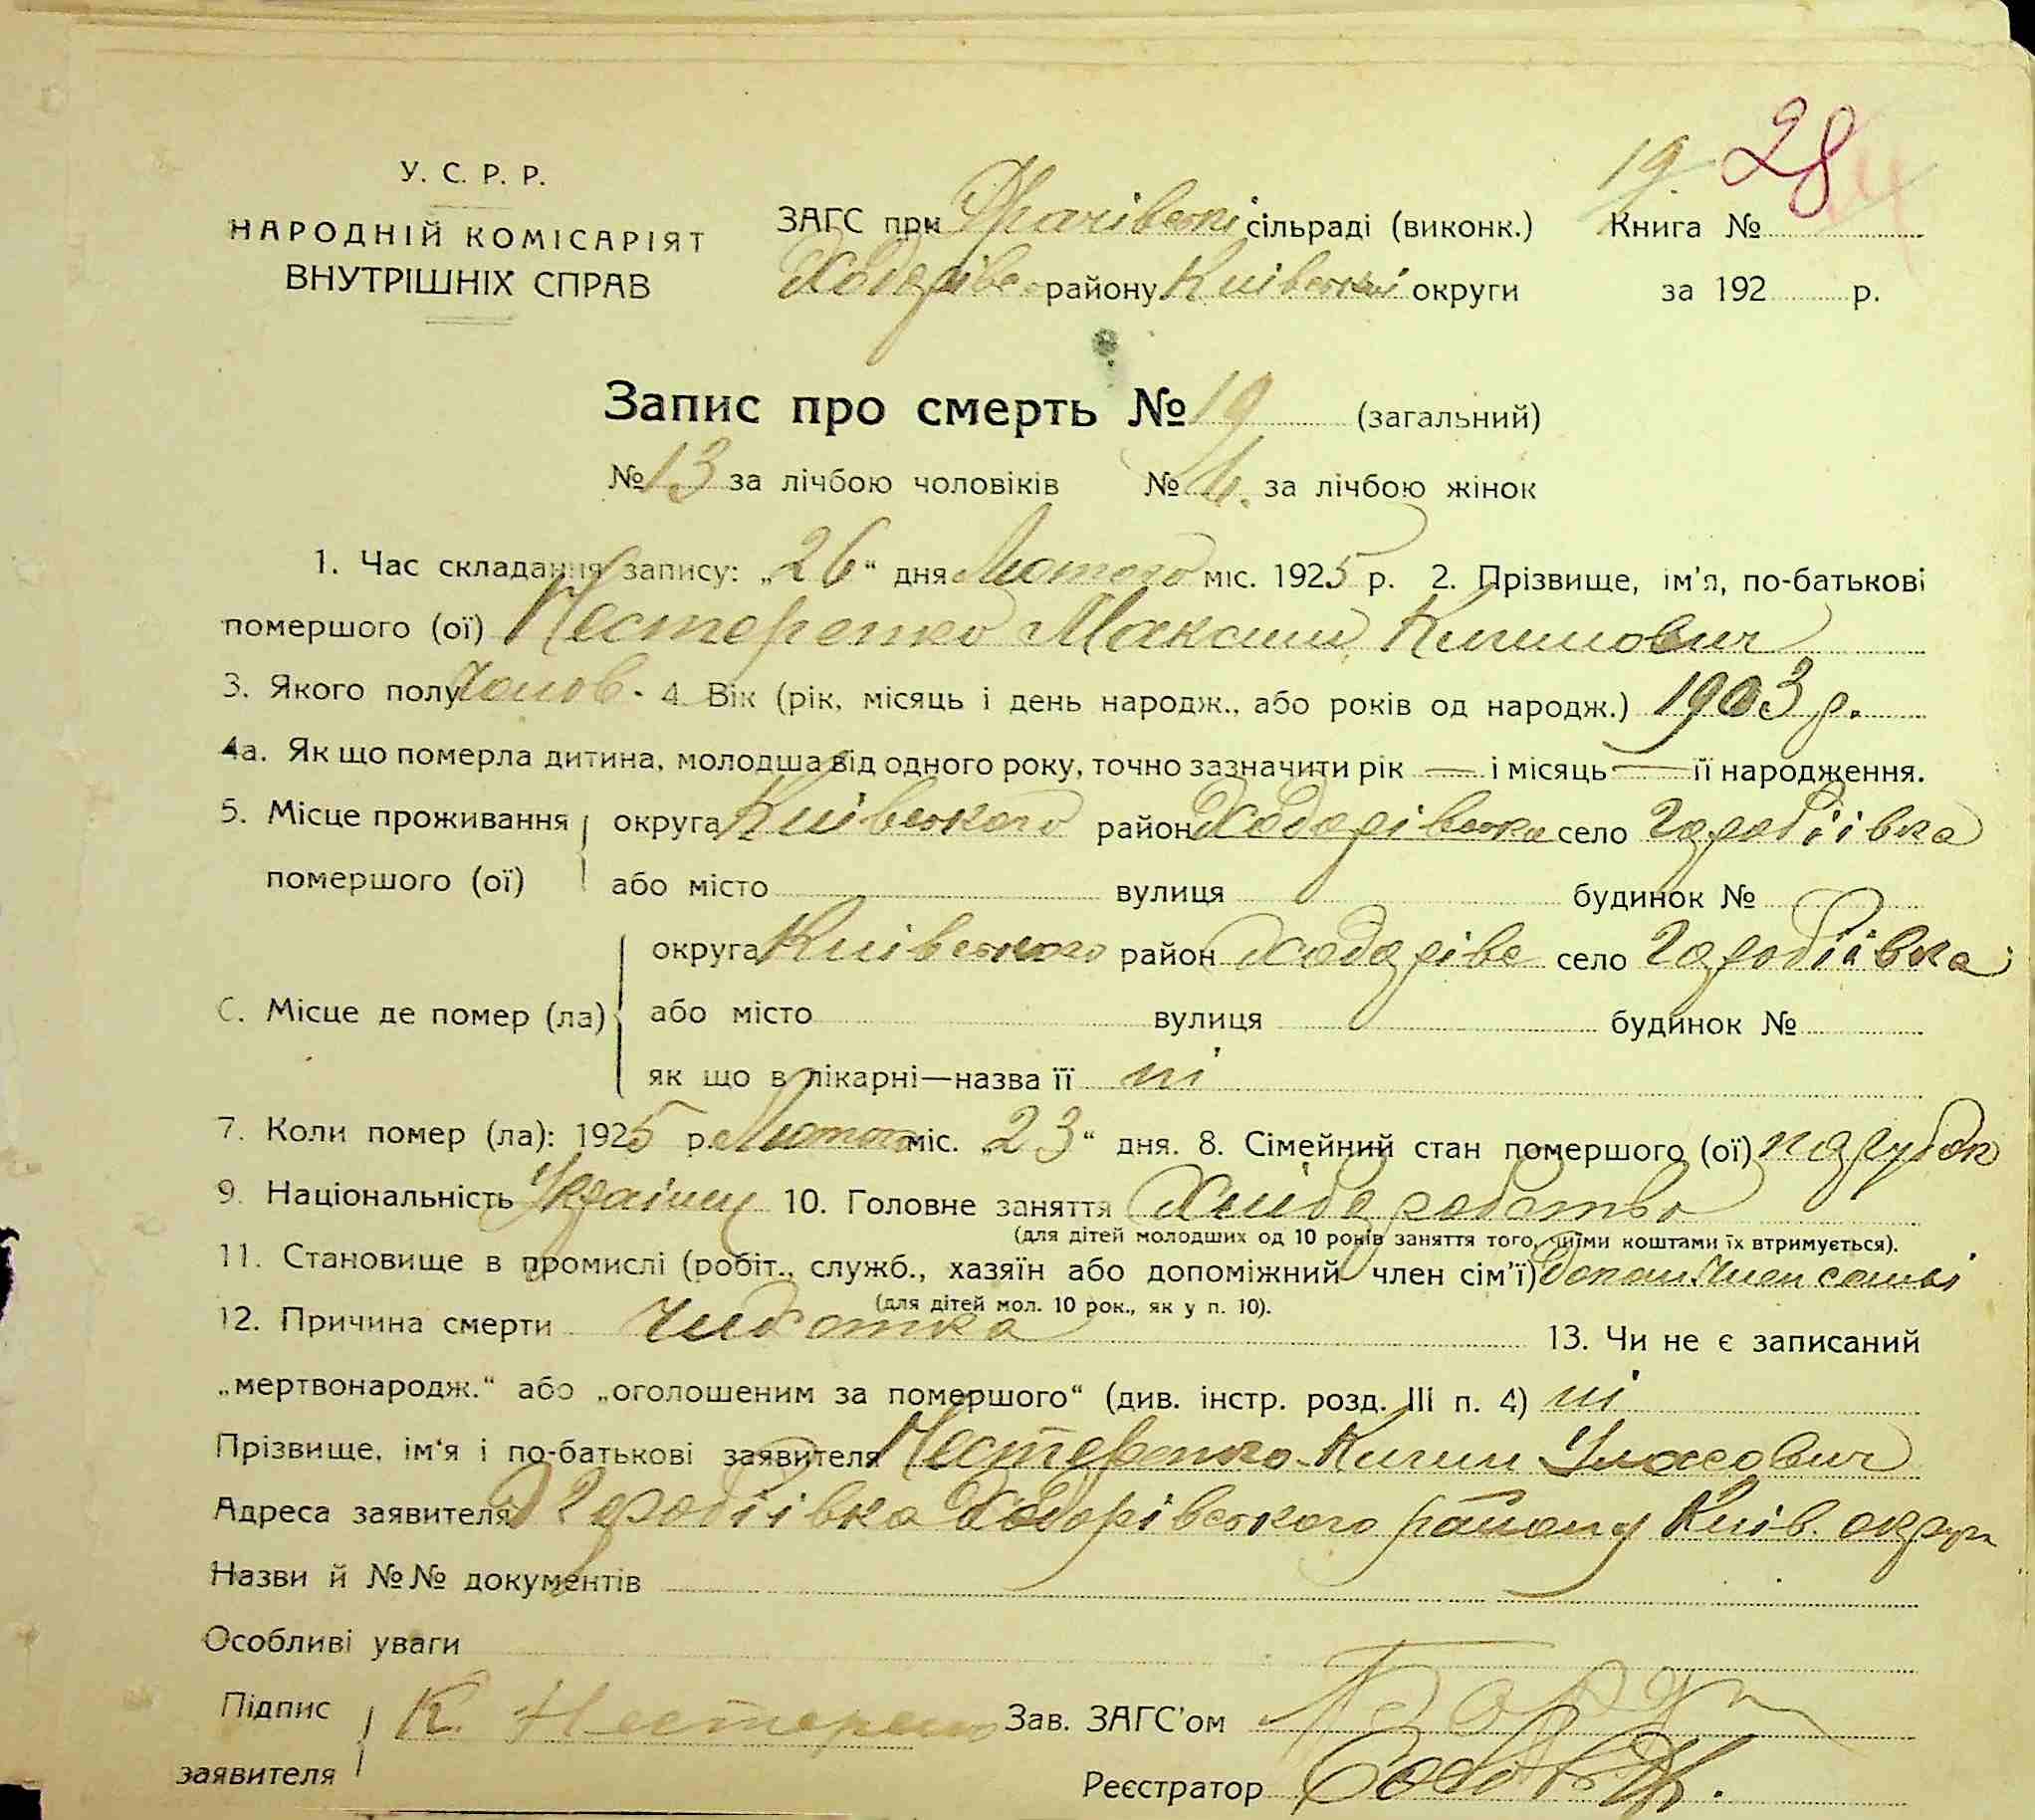 19. 28
У. С. Р. Р.
НАРОДНІЙ КОМІСАРІЯТ
ВНУТРІШНІХ СПРАВ
ЗАГС при сільраді (виконк.) Книга №
Ходорівс району Київської округи за 192 р.
Запис про смерть № 19 (загальний)
№ 13 за лічбою чоловіків № за лічбою жінок
1. Час складання запису: „26“ дня Лютого міс. 1925 р. 2. Прізвище, ім’я, по-батькові
помершого (ої) Нестеренко Максим Кипимович
3. Якого полу Чолов. 4. Вік (рік, місяць і день народж., або років од народж.) 1903 р.
4а. Як що померла дитина, молодша від одного року, точно зазначити рік — і місяць — її народження.
5. Місце проживання округа Київського район Ходорівська село
помершого (ої) або місто вулиця будинок №
округа Київського район Ходорівс село
6. Місце де помер (ла) або місто вулиця будинок №
як що в лікарні—назва її ні
7. Коли помер (ла): 1925 р. Лютого міс. „23“ дня. 8. Сімейний стан помершого (ої) парубок
9. Національність Українец 10. Головне заняття Хлібо робство
(для дітей молодших од 10 років заняття того, чиїми коштами їх втримується).
11. Становище в промислі (робіт., служб., хазяїн або допоміжний член сім’ї) допом. член сем'ї
(для дітей мол. 10 рок., як у п. 10).
12. Причина смерти Чихотка 13. Чи не є записаний
„мертвонародж.“ або „оголошеним за помершого“ (див. інстр. розд. III п. 4) ні
Прізвище, ім‘я і по-батькові заявителя Нестеренко
Адреса заявителя Ходорівського району Київ. округи
Назви й №№ документів
Особливі уваги
Підпис К. Нестеренко Зав. ЗАГС’ом
заявителя Реєстратор